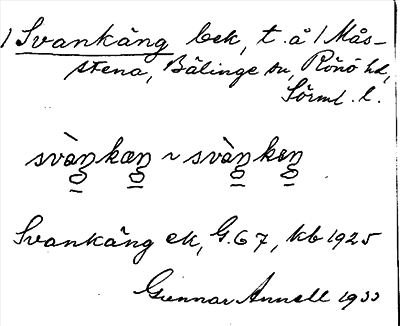 1 Svankäng bek, t. å 1 Mås-
stena, Bälinge sn, Rönö hd,
Sörml. l.
svàŋkæŋ ~ svàŋkeŋ
Svankäng ek, G. 67, kb 1925
Gunnar Annell 1933